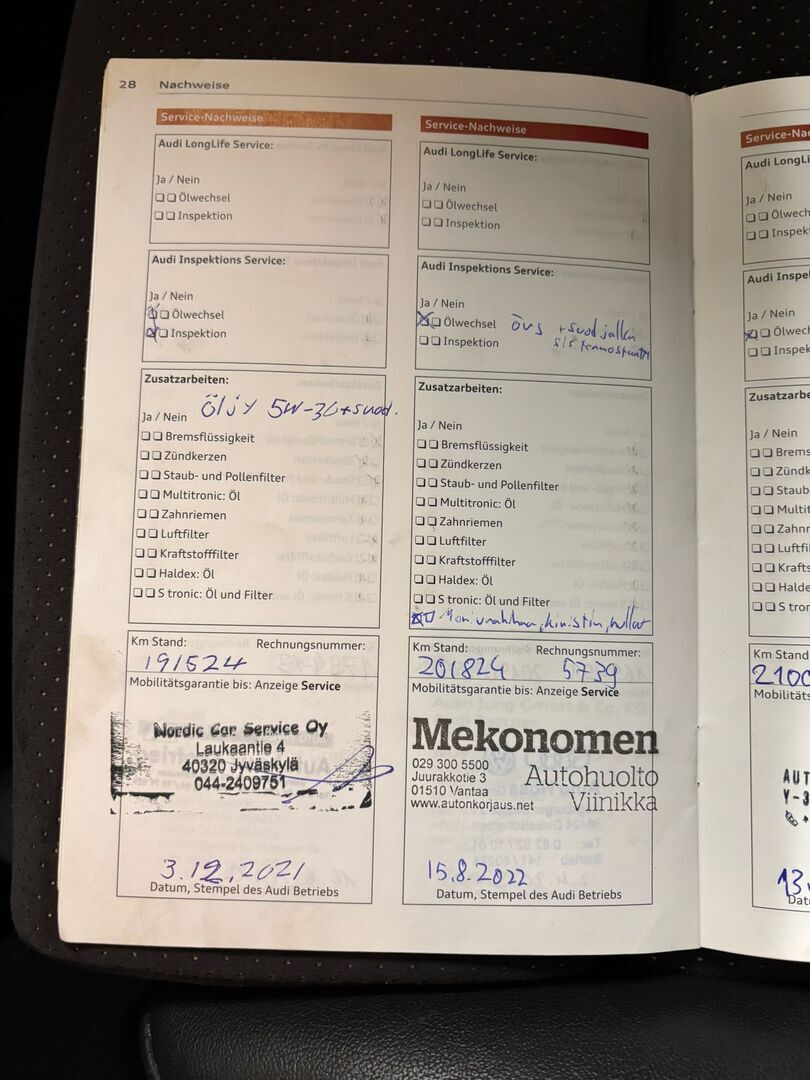 28 Nachweise
Service-Nachweise
Audi LongLife Service:
Ja / Nein
Ölwechsel
Inspektion
Audi Inspektions Service:
Ja / Nein
Ölwechsel
Inspektion
Zusatzarbeiten:
Ja / Nein ÖLJY 5W-30+suod.
Bremsflüssigkeit
Zündkerzen
Staub- und Pollenfilter
Multitronic: Öl
Zahnriemen
Luftfilter
Kraftstofffilter
Haldex: Öl
S tronic: Öl und Filter
Km Stand: Rechnungsnummer:
191524
Mobilitätsgarantie bis: Anzeige Service
Nordic Car Service Oy
Laukaantie 4
40320 Jyväskylä
044-2409751
3.12.2021
Datum, Stempel des Audi Betriebs
Service-Nachweise
Audi LongLife Service:
Ja / Nein
Ölwechsel
Inspektion
Audi Inspektions Service:
Ja / Nein
Ölwechsel
Inspektion
Zusatzarbeiten:
Ja / Nein
Bremsflüssigkeit
Zündkerzen
Staub- und Pollenfilter
Multitronic: Öl
Zahnriemen
Luftfilter
Kraftstofffilter
Haldex: Öl
S tronic: Öl und Filter
Km Stand: Rechnungsnummer:
201824 5739
Mobilitätsgarantie bis: Anzeige Service
Mekonomen
029 300 5500
Juurakkotie 3
01510 Vantaa
www.autonkorjaus.net
Autohuolto
Viinikka
15.8.2022
Datum, Stempel des Audi Betriebs
Audi
Ja / Nein
Ja / Nein
Ja / Nein
Km Stand: